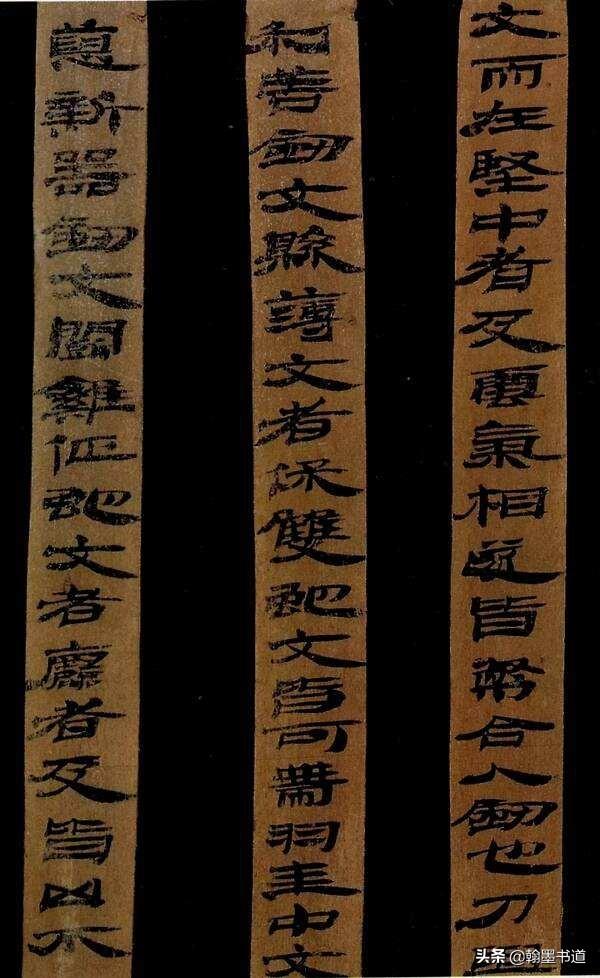 文而在堅中者及雲氣相遂皆幣合人劍也刀
利善劍文縣薄文者保雙蛇文皆可帶羽圭中文
惡新器劍文鬭雞佂蛇文者麤者及皆凶不
头条 @翰墨书道